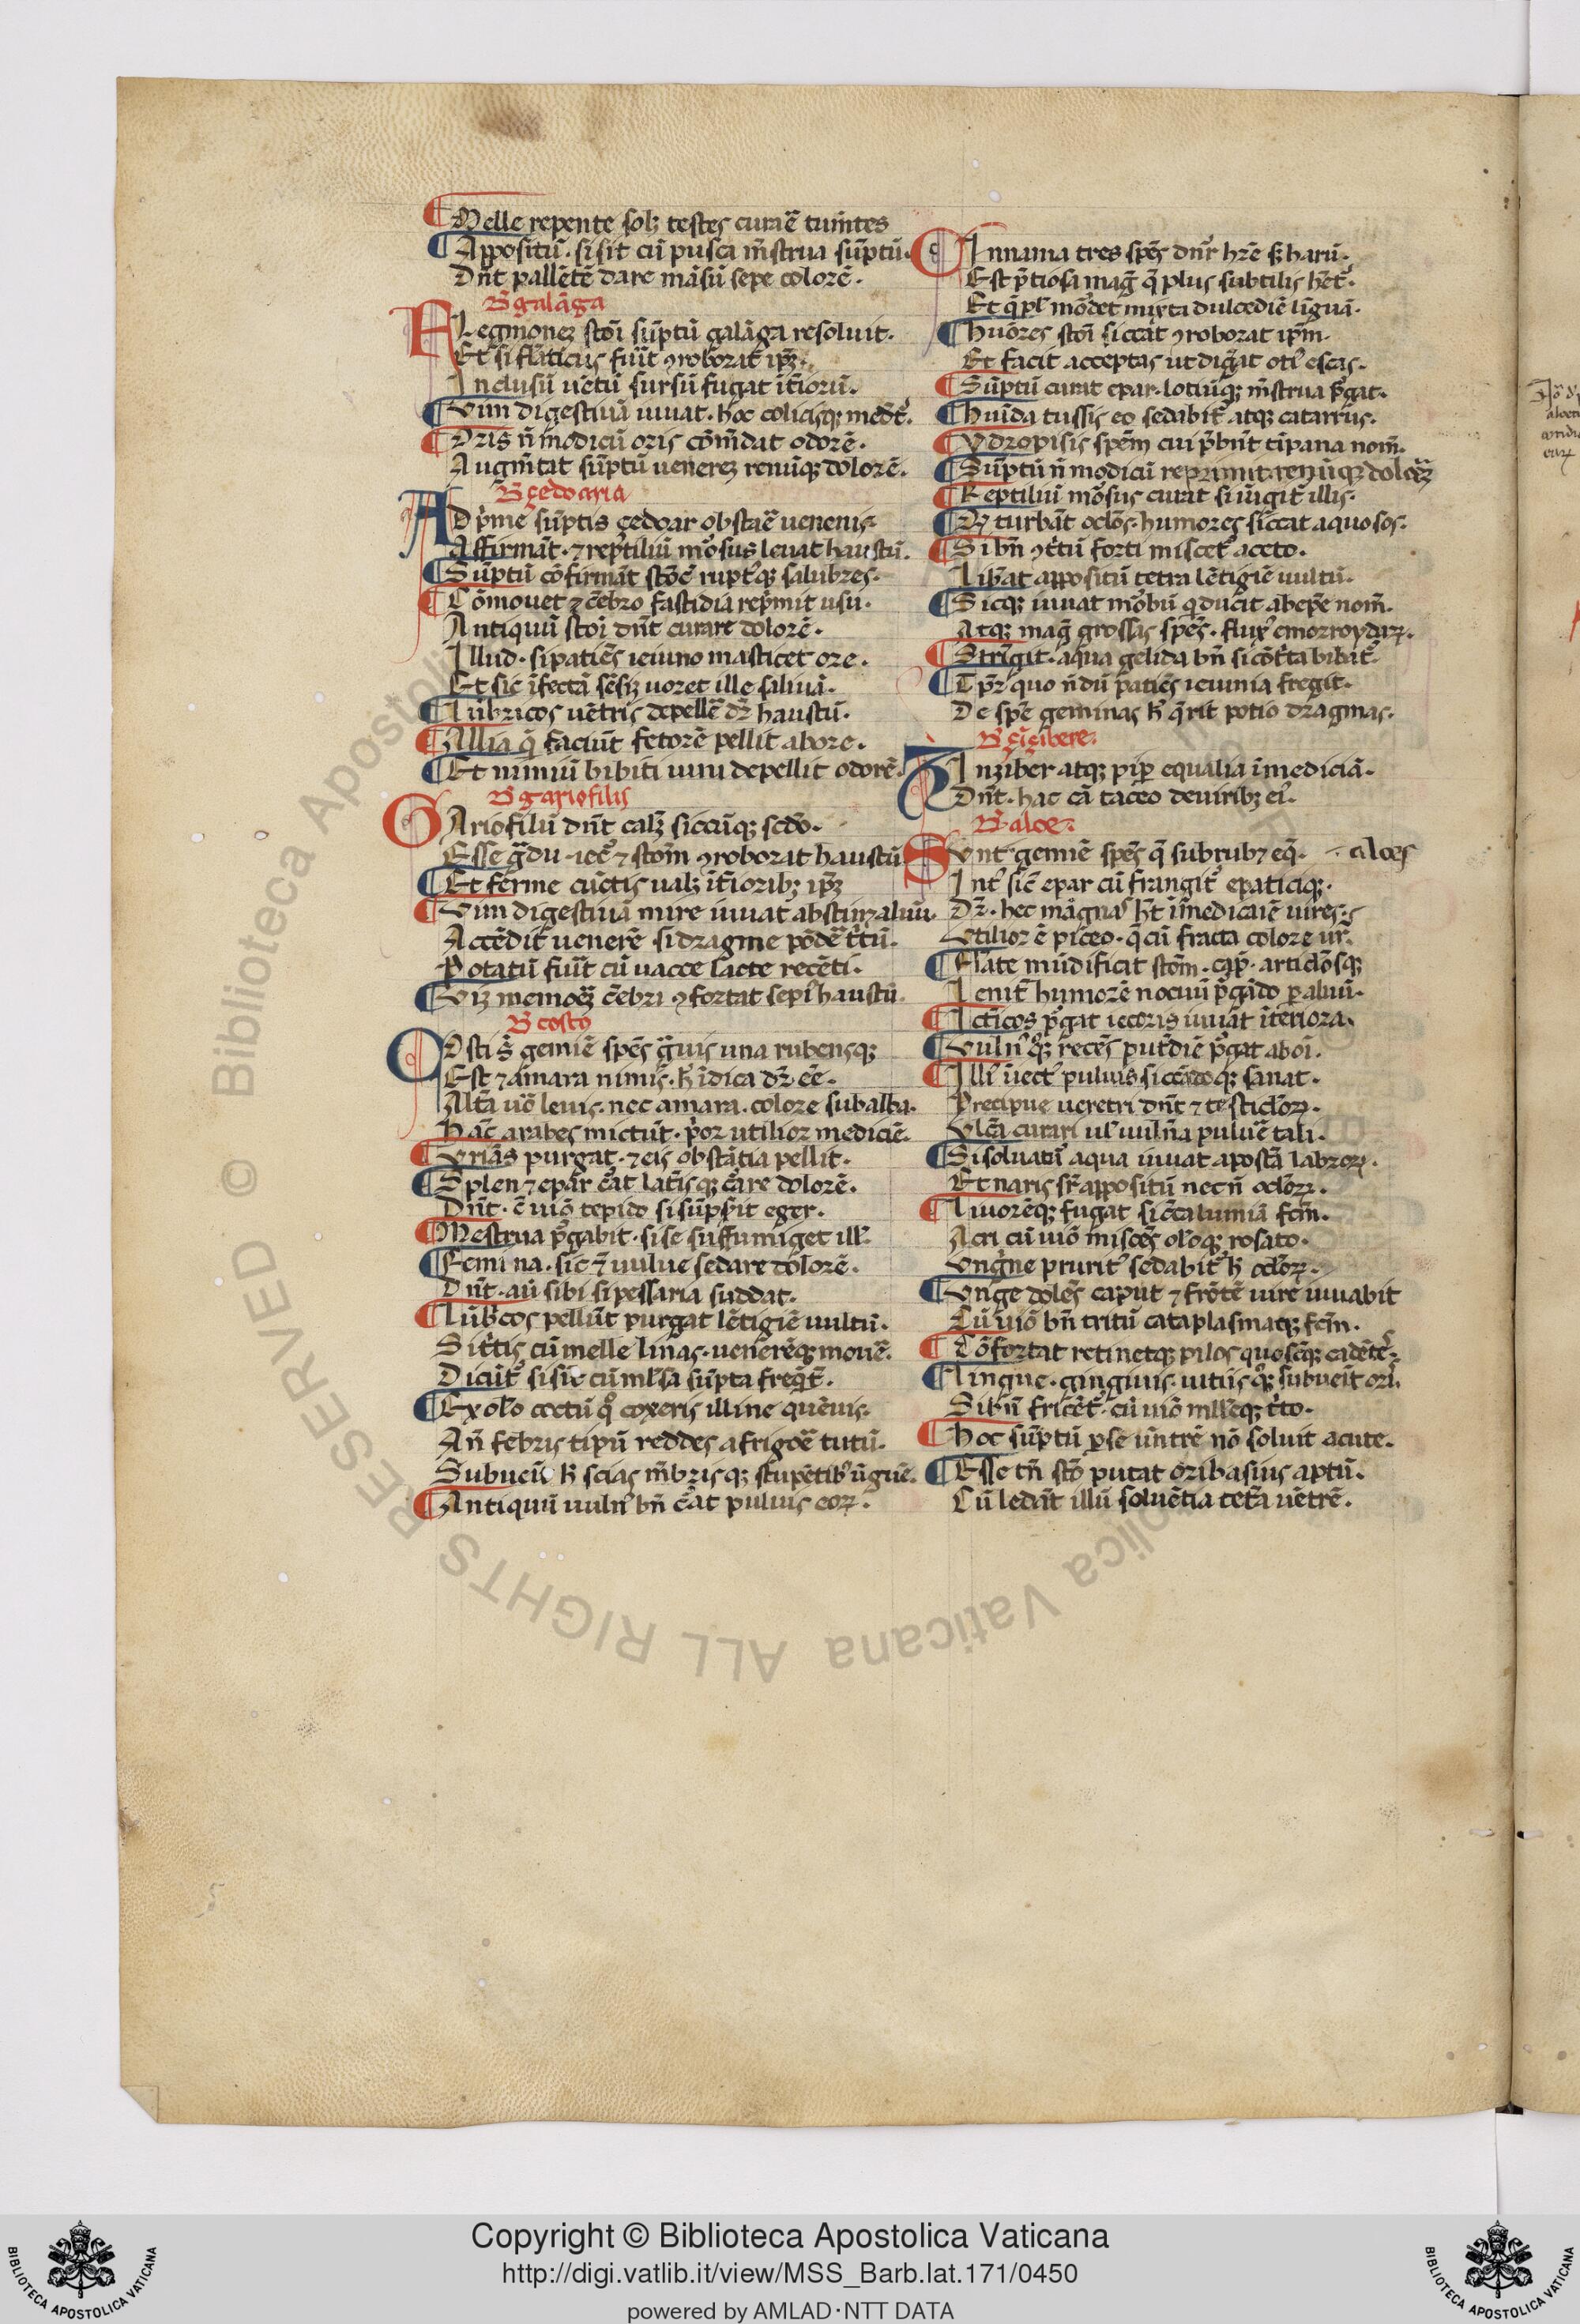 Melle repente solꝫ testes curaꝰe tum̃tes
Appositũ · si sit cũ pusca m̃strua sũptũ ·
Dñt pallẽtẽ dare mãsũ sepe colorẽ ·
℞ galãga
FLegmoneꝫ stõi sũptũ galãga resoluit ·
Et si flãticus fuĩt ꝯroborat ipꝫ ·
Inclusũ uẽtũ sursũ fugat ĩtiorũ ·
Vim digestiuã iuuat · hoc colicisqꝫ medet᷑
Oris ñ modicũ oris cõm̃dat odorẽ ·
Augm̃tat sũptũ uenereꝫ renũqꝫ dolorẽ ·
℞ çedoaria
AD pͥme sũptis çedoar obstaẽ uenenis ·
Affirmãt · ⁊ rep̃tiliũ moꝰsus leuat haustũ ·
Sũptũ cõfirmãt stõc̃ ruptꝰqꝫ salubres ·
Cõmouet ⁊ c̃ebro fastidia rep̃mit usu ·
Antiquũ stõi dñt curare dolorẽ ·
Illud · si patiẽs ieiuno masticet ore ·
Et sic ĩfectã sẽsiꝫ uoret ille saliuã ·
Lũbricos uẽtris depellẽ dꝛ̃ haustũ ·
Allia q̃ faciũt fetorẽ pellit ab ore ·
Et nimiũ bibiti uini depellit odorẽ ·
℞ gariofilis
GAriofilũ dñt calꝫ siccũqꝫ scdõ ·
Esse g̃du · iec᷑ ⁊ stom̃ ꝯroborat haustũ
Et ferme cũctis ualꝫ ĩtioribꝫ ipꝫ
Vim digestiuã mire iuuat abstiꝫ aluũ ·
Accẽdit᷑ uenerẽ si dragme põdẽ tͥtũ ·
Potatũ fuĩt cũ uacce lacte recẽti ·
Viꝫ memoꝝ c̃ebri ꝯfortat sepͥ haustũ ·
℞ costo
COsti s̃ gemiẽ spẽs g̃uis una rubensqꝫ
Est ⁊ amara nimis · h̾ ĩdica dꝛ̃ eẽ ·
Altã uõ leuis · nec amara · colore subalba ·
Hãc arabes mictũt · pͥor utilior mediciẽ ·
Vriãs purgat · ⁊ eis obstãtia pellit ·
Splen ⁊ epar c̃at latĩsqꝫ c̃are dolorẽ ·
Dñt · c̃ uiõ tepido si sũps̃it eger ·
Mestrua pͥgabit · si se suffumiget illꝰ
Femina · sic ⁊̃ uulue sedare dolorẽ ·
Dñt · aũ sibi si pessaria suddat ·
Lũbͥcos pellũt purgat lẽtigiẽ uultũ ·
Si tͥtis cũ melle linas · uenerẽqꝫ mouẽ ·
Dicũt᷑ si sic cũ mlsã sũpta freq̃t᷑ ·
Ex olõ coctũ qͦ coxeris illine quẽuis ·
Añ febris tipũ reddes a frigoẽ tutũ ·
Subueĩt h̾ scias m̃brisqꝫ stupẽtibꝰ ũguẽ ·
Antiquũ uulnꝰ bñ c̃at puluis eoꝝ ·
CInnama tres spẽs dñr hꝛ̃e sꝫ harũ ·
Est p̃tiosa mag̃ q̃ plus subtilis het᷑ ·
Et q̃ plꝰ mõdet mixta dulcediẽ liguã ·
Huõres stõi siccãt ꝯroborat ipm̃ ·
Et facit acceptas ut dig̃at otiꝰ escas ·
Sũptũ curat epar · lotiũqꝫ m̃strua pͥgat ·
Huĩda tussis eo sedabit᷑ atqꝫ catarrus ·
Ydropisis spẽm cui p̃bñt tĩpana nom̃ ·
Sũptũ ñ modicũ reprimit · renũqꝫ dolorẽ
Reptiliũ mõsus curat si ũigit᷑ illis ·
Qꝫ turbãt oclõs · humores siccat aquosos ·
Si bñ ꝯtͥtũ forti miscet᷑ aceto ·
Libãt appositũ tetra lẽtigiẽ uultũ ·
Sicqꝫ iuuat mõbũ q̃ ducit ab epẽ nom̃ ·
Atqꝫ mag̃ grossas spẽs · fluxꝰ emorroydaꝝ ·
Strĩgit · aqua gelida bñ si cõtͥta bibat᷑ ·
Tp̃r quo ñdũ patiẽs ieiunia fregit ·
De spẽ geminas h̾ q̃rit potio dragmas ·
℞ çĩçibere ·
ZInziber atqꝫ pip̲ equalia ĩ mediciã ·
Dñt · hac cã taceo de uiribꝫ eiꝰ ·
℞ aloe ·
SVnt gemiẽ spẽs q̃ subrubꝫ eq̃ · · aloes
Intꝰ sic̃ epar cũ frangit᷑ epaticiqꝫ ·
Dꝛ̃ · hec mãgnas h̾t ĩ mediciẽ uires ·
Vtilior ẽ piceo · q̃ cũ fracta colore ur̃
Elate mũdificat stom̃ · cap̲ · articlõsqꝫ
Lenit humorẽ nociuũ p̃gãdo p̲ aluũ ·
Ictͥcos p̃gat iecoris iuuat ĩteriora ·
Vulnꝰ qꝫ recẽs putͥdiẽ p̃gat ab oĩ ·
Illͥ iĩect᷑ puluis siccãdoqꝫ sanat ·
Precipue ueretri dñt ⁊ testiclõꝝ ·
Vlc̃a curari ulꝰ uulña puluẽ tali ·
Si soluatũ aqua iuuat apostã labroꝝ ·
Et naris sr̃ appositũ necñ oclõꝝ ·
Liuorẽqꝫ fugat sic̃ calumiã fcm̃ ·
Acri cũ uiõ misces olõqꝫ rosato ·
Vng̃ne pruritꝰ sedabit᷑ h̾ oclõꝝ ·
Vnge dolẽs caput ⁊ frõtẽ mire iuuabit
Cũ uiõ bñ tritũ cataplasmaqꝫ fcm̃ ·
Cõfortat retinetqꝫ pilos quoscũqꝫ cadẽtes ·
Lingue · gingiuis · uitiis qꝫ subueĩt oriꝰ
Si bñ fricẽt᷑ · cũ uiõ mlleqꝫ tͥto ·
Hoc sũptũ p̲ se uẽtrẽ nõ soluit acute ·
Esse tñ stõ putat oribasius aptũ ·
Cũ ledãt illũ soluẽtia tetã uẽtrẽ ·
Copyright © Biblioteca Apostolica Vaticana
http://digi.vatlib.it/view/MSS_Barb.lat.171/0450
powered by AMLAD·NTT DATA
BIBLIOTECA APOSTOLICA VATICANA
BIBLIOTECA APOSTOLICA VATICANA
© Biblioteca Apostolica Vaticana ALL RIGHTS RESERVED